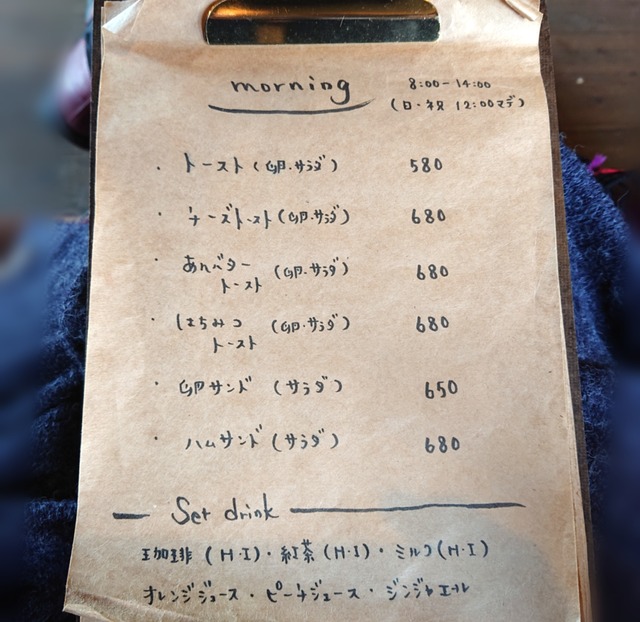 morning 8:00-14:00
(日・祝 12:00マデ)
・トースト(卵・サラダ) 580
・チーズトースト(卵・サラダ) 680
・あんバタートースト (卵・サラダ) 680
・はちみつトースト (卵・サラダ) 680
・卵サンド (サラダ) 650
・ハムサンド (サラダ) 680
Set drink
珈琲 (H・I)・紅茶 (H・I)・ミルク(H・I)
オレンジジュース・ピーチジュース・ジンジャエール